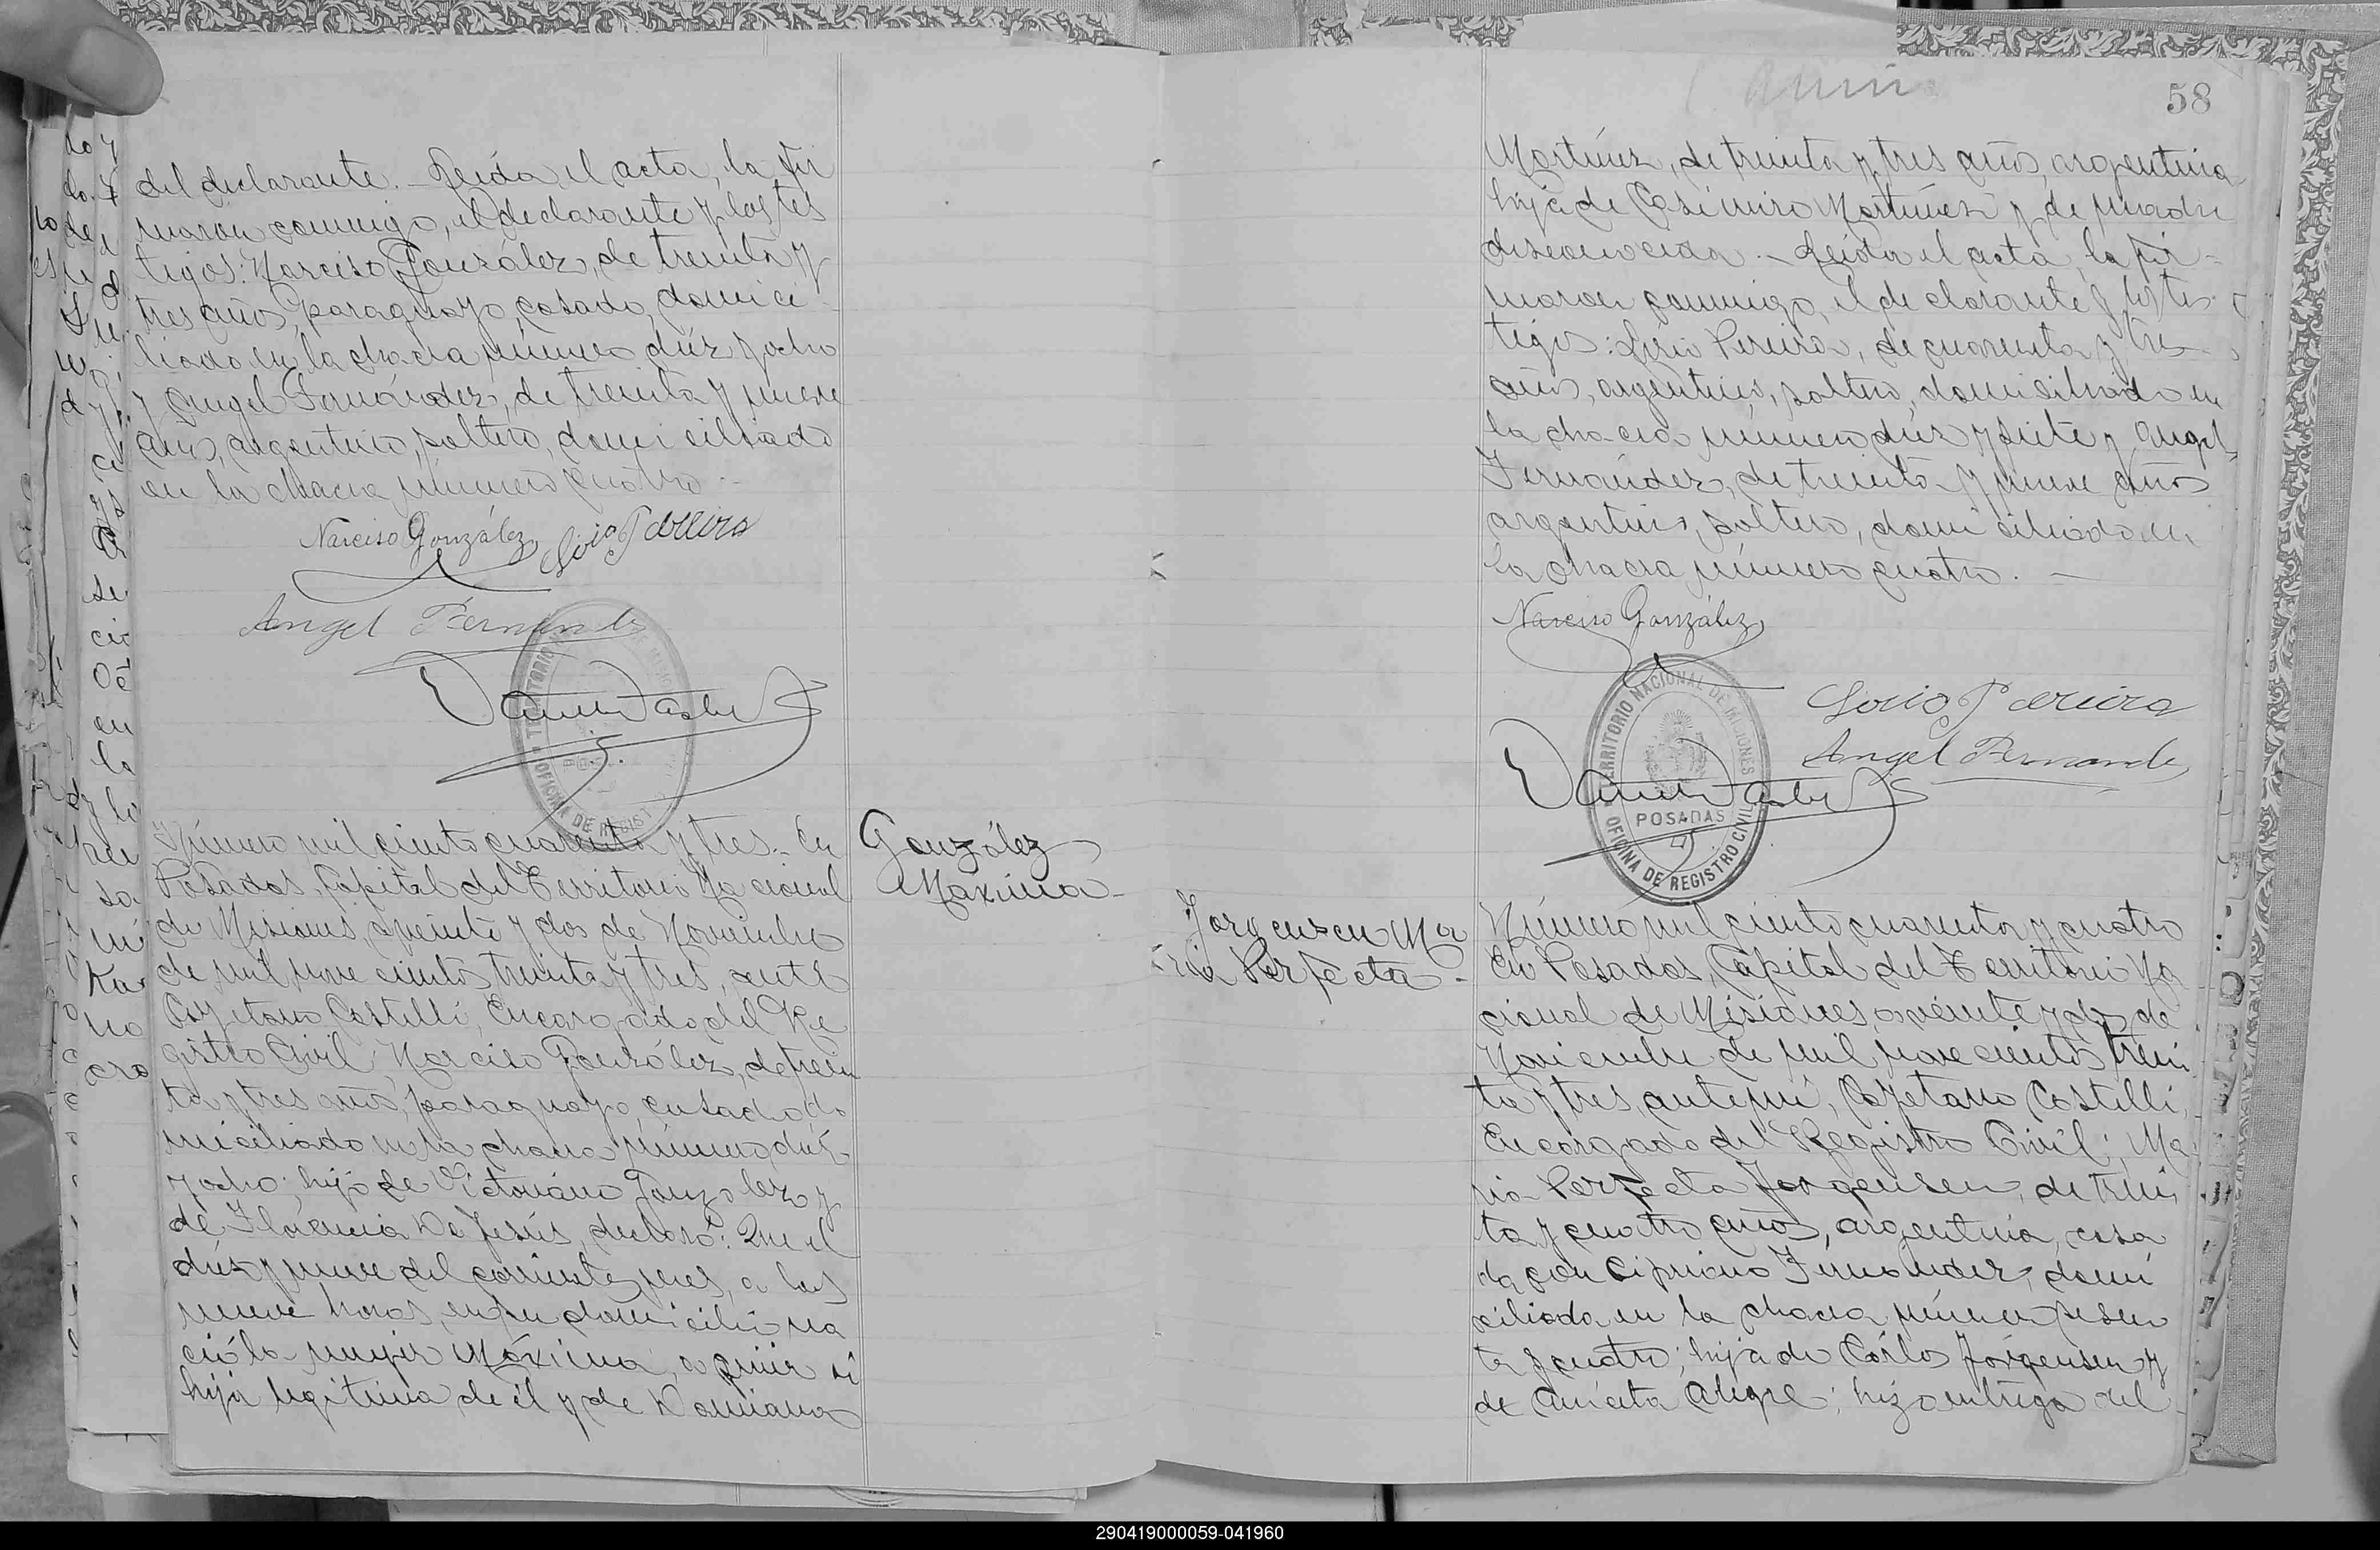 del declarante. — Leída el acta, la fir
maron conmigo, el declarante y los tes
tigos: Narciso González, de treinta y
tres años, paraguayo, casado, domici-
liado en la chacra número diez y ocho
y Angel Fernández, de treinta y nueve
años, argentino, soltero, domiciliado
en la chacra número cuatro. -
Narciso González Lirio Pereira
Angel Fernande
TERRITORIO
OFICINA DE REGIST
Número mil ciento cuarenta y tres. - En
Posadas, Capital del Territorio Nacional
de Misiones, a veinte y dos de Noviembre
de mil novecientos treinta y tres, ante
Cayetano Castelli, Encargado del Re
gistro Civil, Narciso González, de trein
ta y tres años, paraguayo, casado, do
miciliado en la chacra número diez
y ocho; hijo de Victoriano González y
de Florencia De Jesús, declaró: Que el
diez y nueve del corriente mes, a las
nueve horas, en su domicilio na
ció la mujer Máxima, a quien vi
hija legítima de él y de Damiana
González
Maxima -
58
Martínez, de treinta y tres años, argentina
hija de Casimiro Martínez y de madre
desconocida. - Leída el acta, la fir-
maron conmigo, el declarante y los tes
tigos: Lirio Pereira, de cuarenta y tres
años, argentino, soltero, domiciliado en
la chacra número diez y siete y Angel
Fernández, de treinta y nueve años
argentino, soltero, domiciliado en
la chacra número cuatro. —
Narciso González
Lirio Pereira
Angel Fernande
TERRITORIO NACIONAL DE MISIONES
POSADAS
OFICINA DE REGISTRO CIVIL
Jorgensen Ma
ria Perfecta -
Número mil ciento cuarenta y cuatro
En Posadas, Capital del Territorio Na
cional de Misiones, a veinte y dos de
Noviembre de mil novecientos trein
ta y tres, ante mí, Cayetano Castelli,
Encargado del Registro Civil; Ma
ria Perfecta Jorgensen, de trein
ta y cuatro años, argentina, casa
da con Cipriano Fernández, domi
ciliada en la chacra número sesen
ta y cuatro; hija de Cárlos Jórgensen y
de Aniceta Alegre; hizo entrega del
290419000059-041960